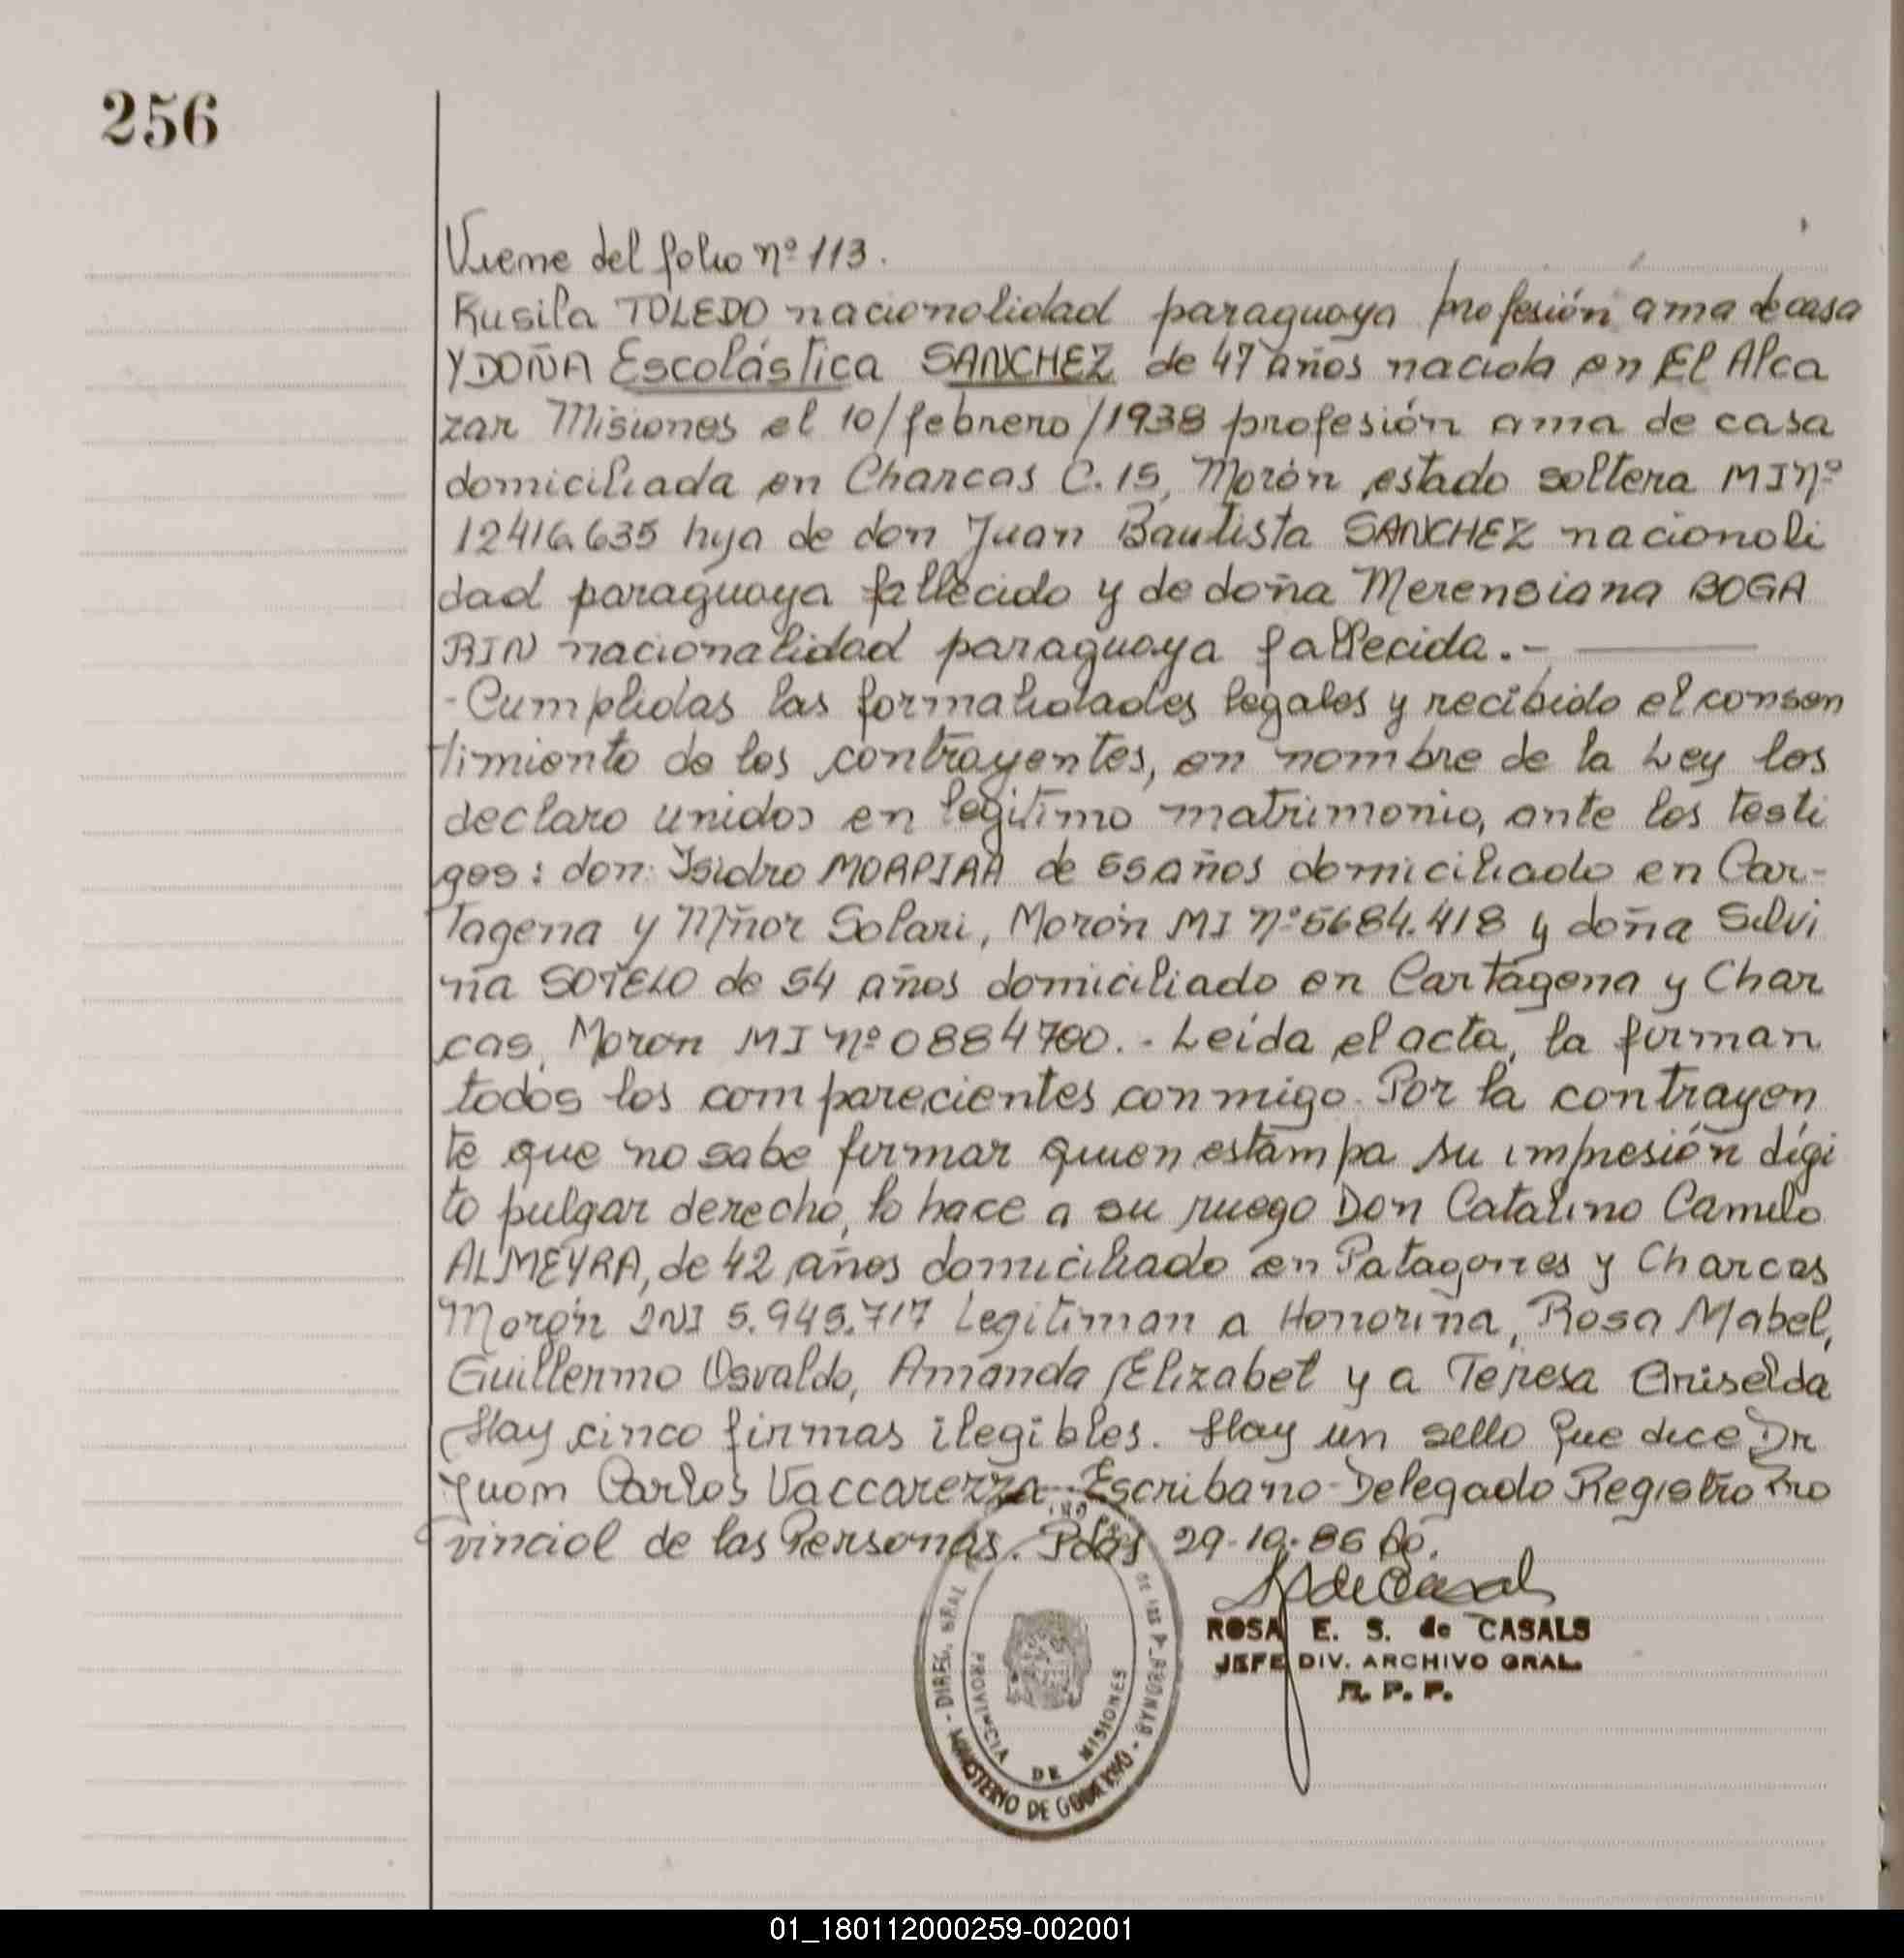 256
Viene del folio nº 113.
Rusila TOLEDO nacionalidad paraguaya profesión ama de casa
Y DOÑA Escolástica SANCHEZ de 47 años nacida en El Alca
zar Misiones el 10/febrero/1938 profesión ama de casa
domiciliada en Charcas C. 15, Morón estado soltera MI nº
12416.635 hija de don Juan Bautista SANCHEZ nacionali
dad paraguaya fallecido y de doña Merensiana BOGA
RIN nacionalidad paraguaya fallecida.-
- Cumplidas las formalidades legales y recibido el consen
timiento de los contrayentes, en nombre de la Ley los
declaro unidos en legitimo matrimonio, ante los testi
gos: don: Isidro de 55 años domiciliado en Car-
tagena y Mñor Solari, Morón MI nº 5684.418 y doña Silvi
na SOTELO de 54 años domiciliado en Cartagena y Char
cas, Moron MI nº 0884700.- Leída el acta, la firman
todos los comparecientes conmigo. Por la contrayen
te que no sabe firmar quien estampa su impresión dígi
to pulgar derecho, lo hace a su ruego Don Catalino Camilo
ALMEYRA, de 42 años domiciliado en Patagones y Charcas
Morón DNI 5.945.717 Legitiman a Honorina, Rosa Mabel,
Guillermo Osvaldo, Amanda Elizabet y a Teresa Griselda
Hay cinco firmas ilegibles. Hay un sello que dice Dr
Juan Carlos Vaccarezza Escribano-Delegado Registro Pro
vincial de las Personas. Pdas 29-10-86
ROSA E. S. de CASALS
JEFE DIV. ARCHIVO GRAL.
R. P. P.
DIREC. GRAL DE LAS PERSONAS - MINISTERIO DE GOBIERNO
PROVINCIA DE MISIONES
01_180112000259-002001